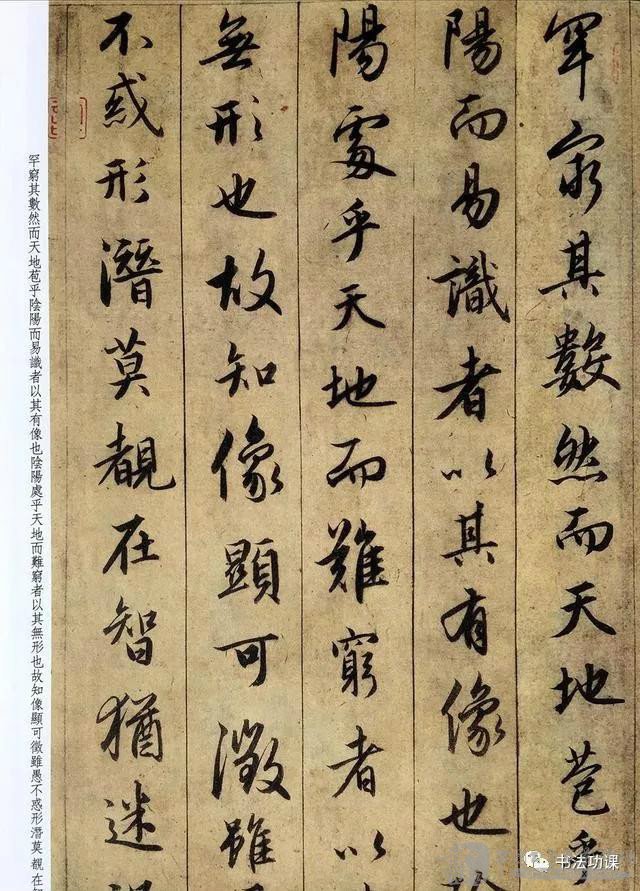 罕窮其數然而天地苞乎
陽而易識者以其有像也
陽處乎天地而難窮者以
無形也故知像顯可徵雖
不惑形潛莫覩在智猶迷
罕窮其數然而天地苞乎陰陽而易識者以其有像也陰陽處乎天地而難窮者以其無形也故知像顯可徵雖愚不惑形潛莫覩在
书法功课